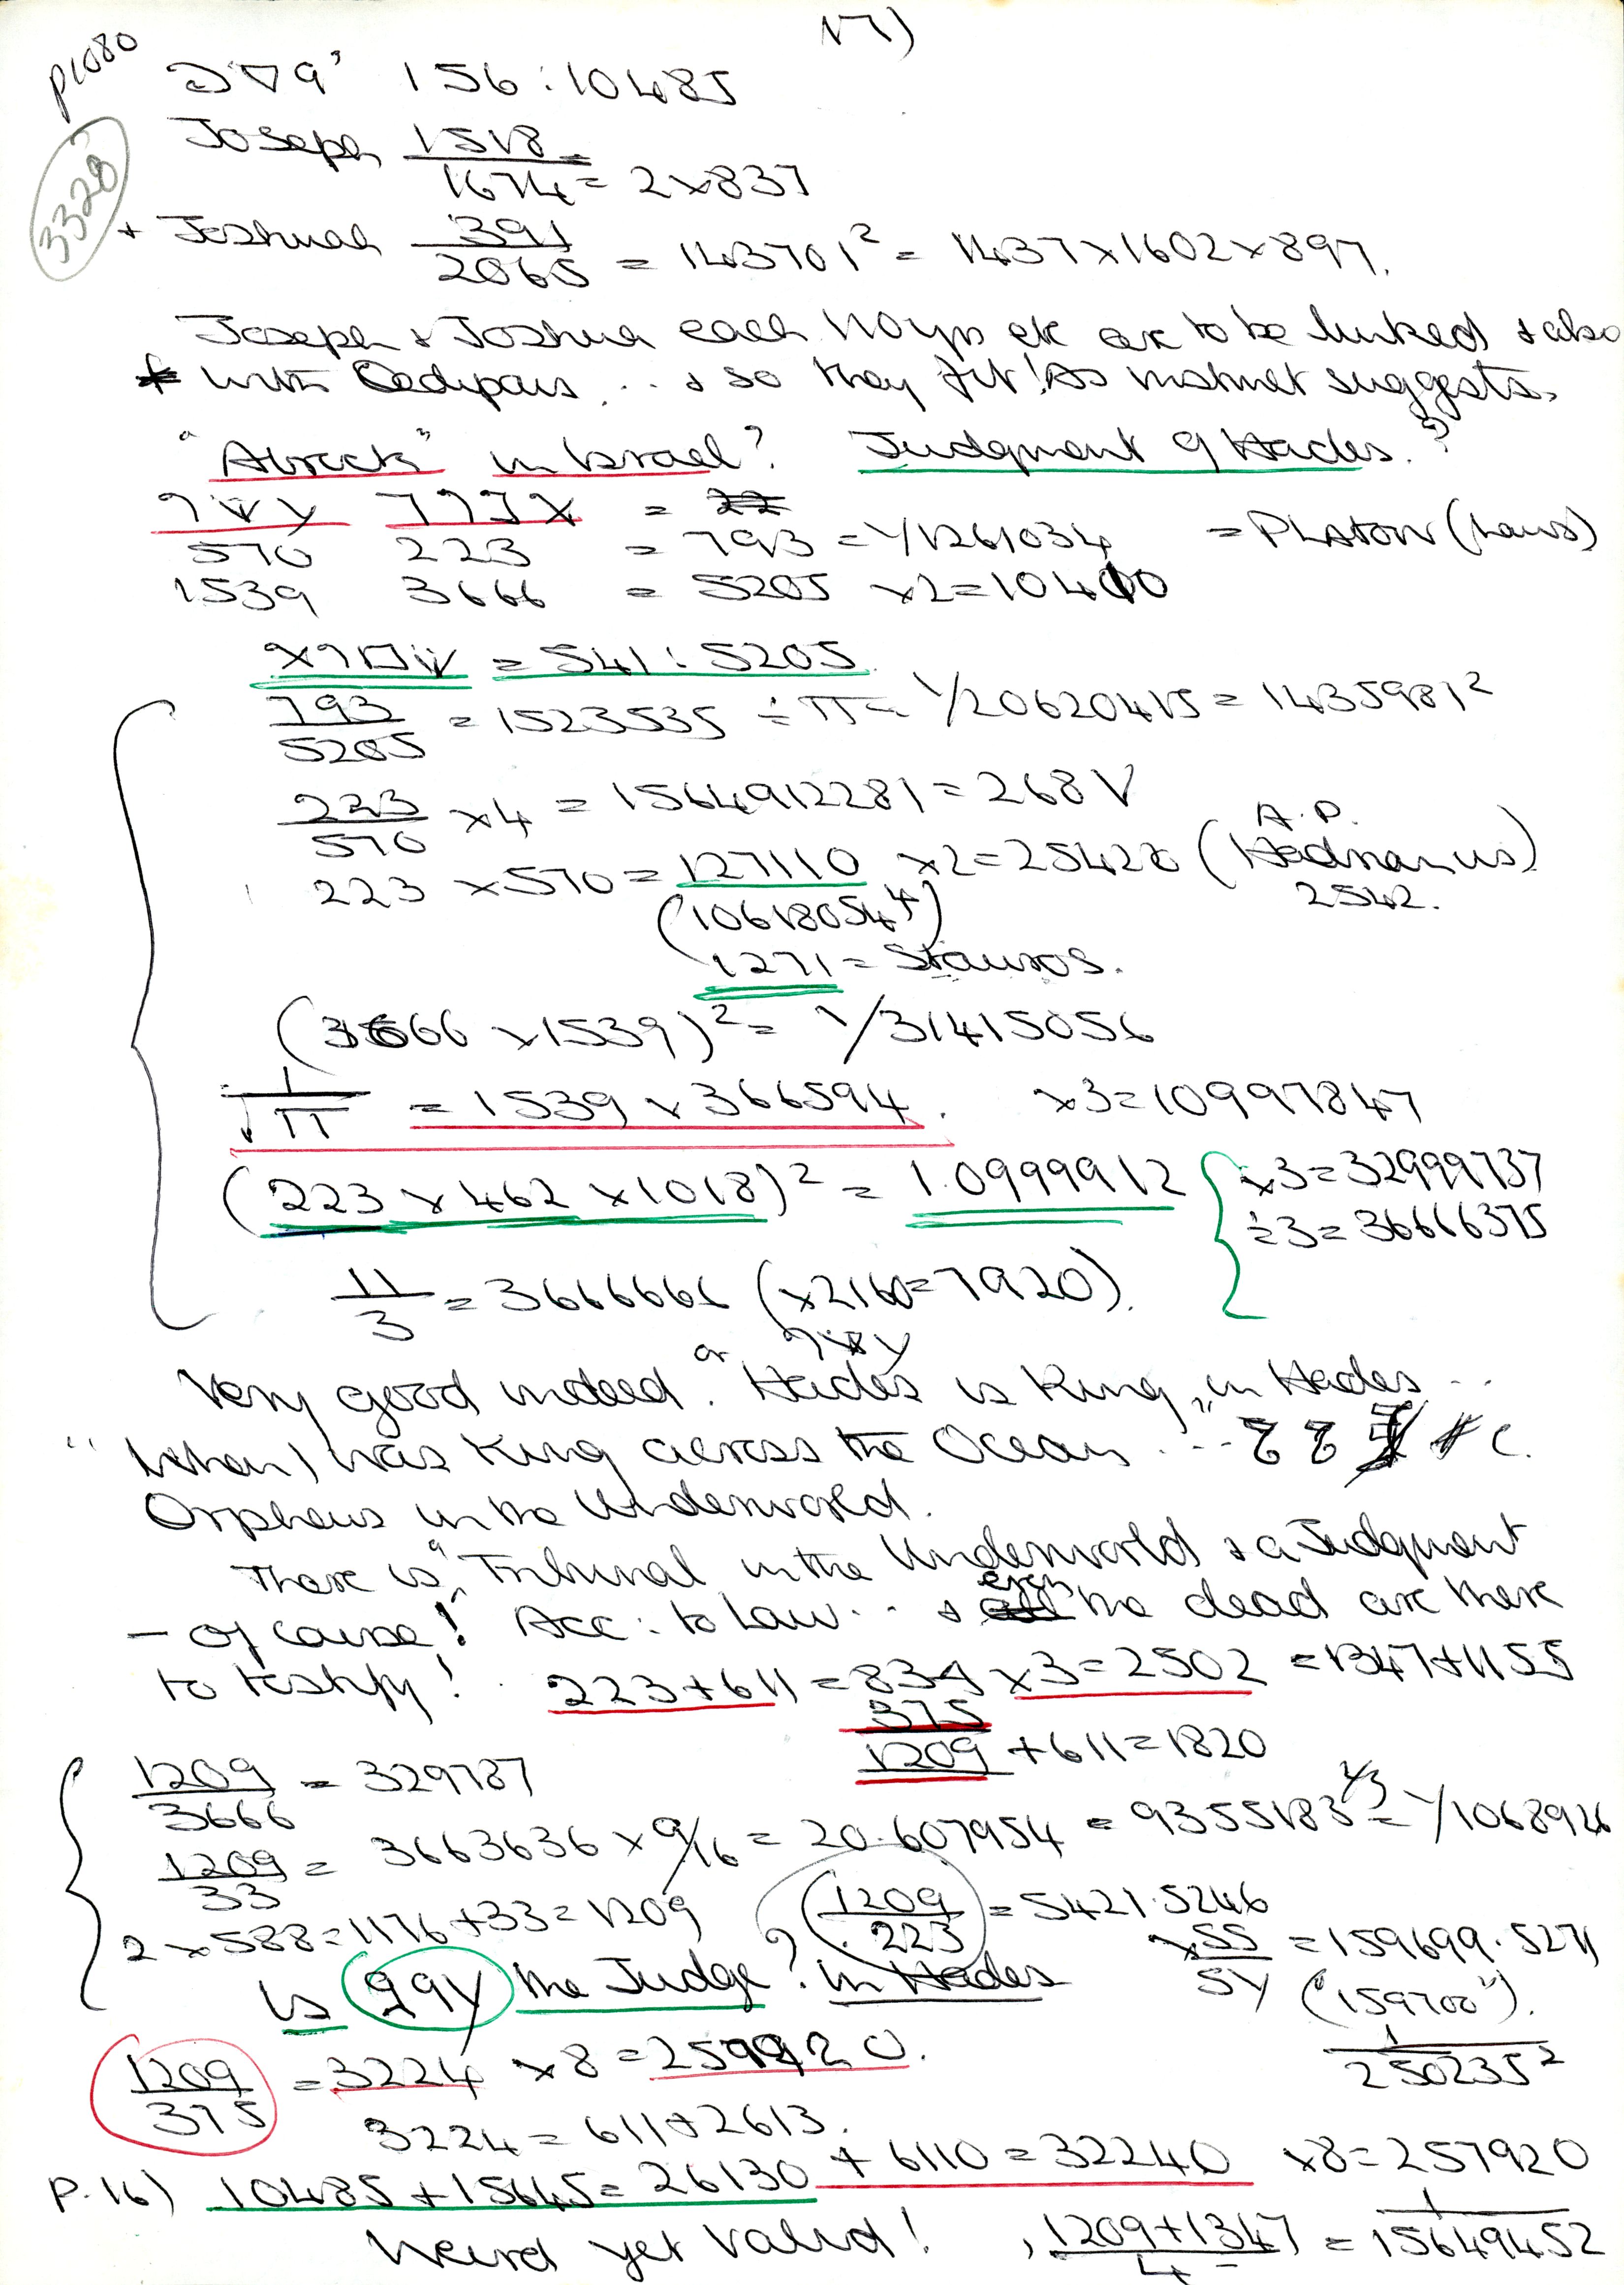 17)
P1080
3328
156 : 10485
Joseph 1518
1674 = 2x837
+ Joshuah 391
2065 = 143701² = 1437x1602x897.
Joseph & Joshua each to be linked & also
with Oedipus... & so they fit! As suggests.
"Abrech" in Israel? Judgment of Hades.?
= 22
570 223 = 793 = 1/1261034 = PLATON (Laws)
1539 3666 = 5205 x2=10410
= 541 : 5205
793/5205 = 1523535 ÷ π = 1/20620415 = 1435981²
223/570 x4 = 1564912281 = 268 V
223 x570 = 127110 x2=25420 (A.P. Hadrianus) 2542.
(10618054⁴)
1271 = Stauros.
(3666 x1539)² = 1/31415056
1/√π = 1539 x 366594. x3=10997847
(223 x462 x1018)² = 1.0999912 x3=32999737
÷3=36666375
11/3 = 3666666 (x2160=7920).
Very good indeed. or Hades is King "in Hades...
"When I was King across the Ocean... &c.
Orpheus in the Underworld.
There is "Tribunal in the Underworld & a Judgment
- of cause! Acc: to Law... & even the dead are there
to testify! 223+611=834 x3=2502 = 1347+1155
375
1209 +611=1820
1209/3666 = 329787
1209/33 = 3663636 x 9/16 = 20.607954 = 9355183 = 1/1068926
2x588=1176+33=1209 ? (1209/223) = 5421.5246
x55/54 = 159699.5271
("159700").
Is 99y the Judge? in Hades
1/250235²
1209/375 = 3224 x8 = 257920.
3224 = 611+2613.
P.16) 10485+15645=26130 + 6110=32240 x8=257920
Weird yet Valid! , 1209+1347/4 = 1/15649452